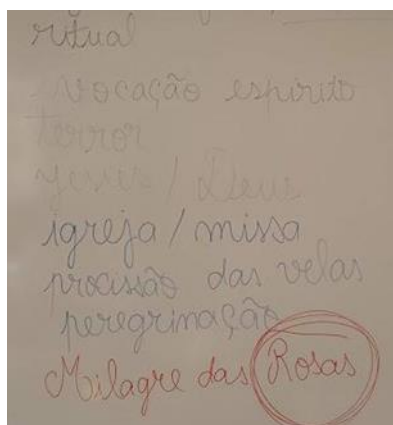 ritual
vocação espírito
terror
/ Deus
igreja / missa
procissão das velas
peregrinação
Milagre das Rosas